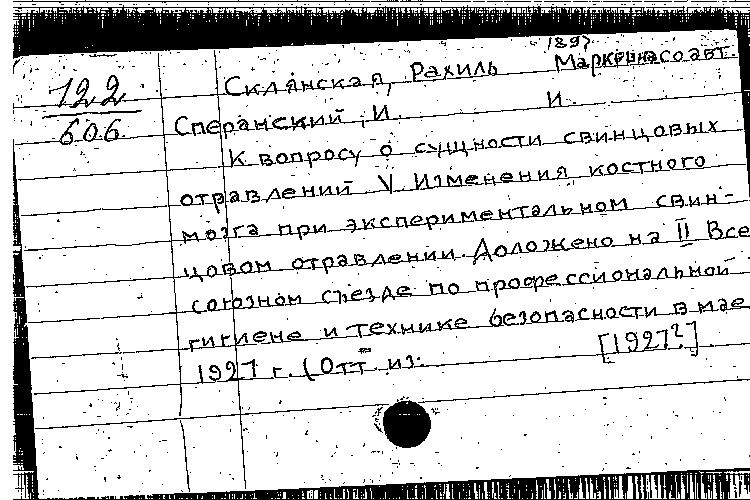 1897
122 Склянская, Рахиль Марковна соавт.
606 Сперанский, И. И.
К вопросу о сущности свинцовых
отравлений V Изменения костного
мозга при экспериментальном свин-
цовом отравлении. Доложено на II Все
союзном съезде по профессиональной
гигиене и технике безопасности в мае
1927 г. (Отт. из: [1927?]